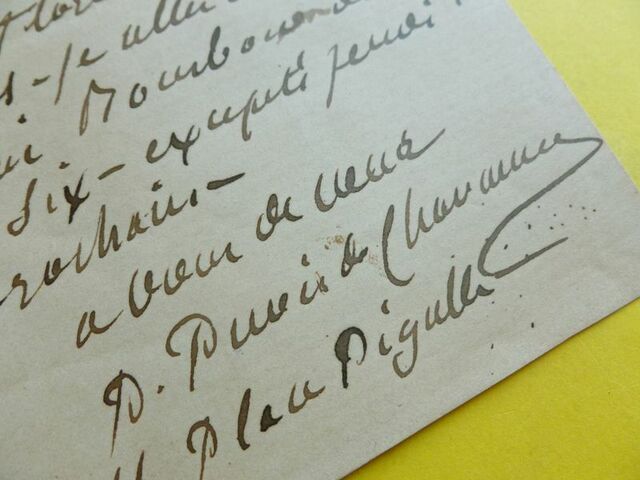 -je aller
Bourbon
six - excepté jeudi
prochain -
a vous de cœur
P. Puvis de Chavannes
11 Place Pigalle